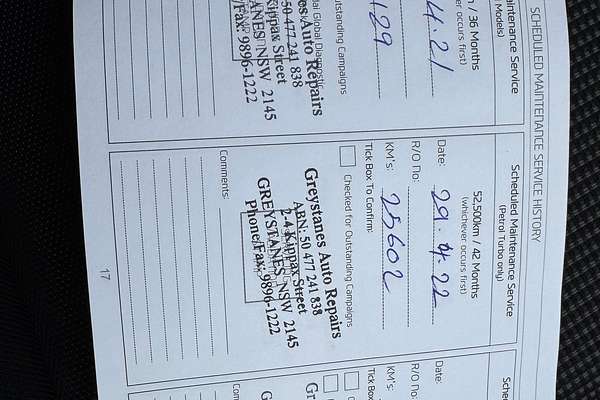 SCHEDULED MAINTENANCE SERVICE HISTORY
/ 36 Months
occurs first)
Maintenance Service
Models)
4.21
129
Outstanding Campaigns
Global Diagnostic
Auto Repairs
50 477 241 838
Kippax Street
NSW 2145
Fax: 9896-1222
Scheduled Maintenance Service
(Petrol Turbo only)
52,500km / 42 Months
(whichever occurs first)
Date: 29.4.22
R/O no:
KM's: 25602
Tick Box To Confirm:
Checked for Outstanding Campaigns
Greystanes Auto Repairs
ABN: 50 477 241 838
2-4 Kippax Street
GREYSTANES NSW 2145
Phone/Fax: 9896-1222
Comments
17
Date:
R/O no:
KM's:
Tick Box